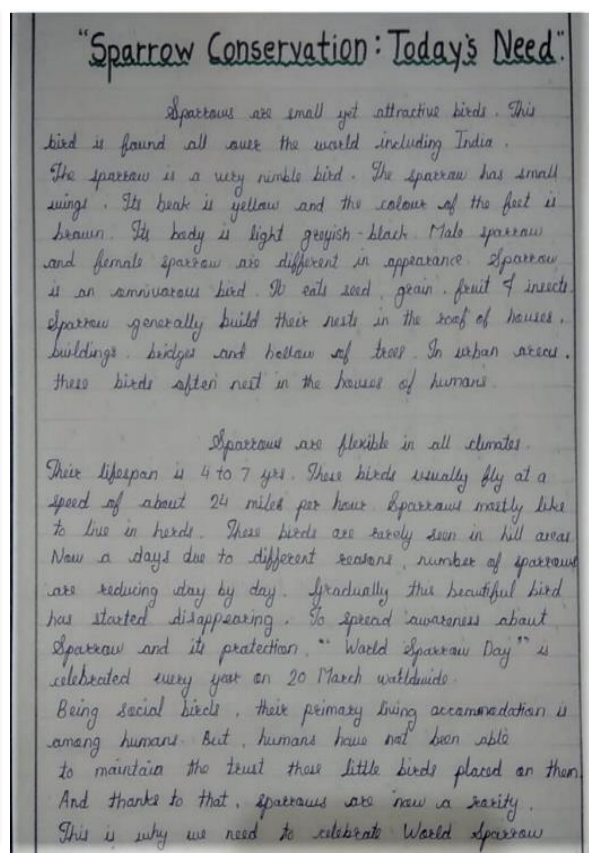 "Sparrow Conservation: Today's Need".
Sparrows are small yet attractive birds. This
bird is found all over the world including India.
The sparrow is a very nimble bird. The sparrow has small
wings. Its beak is yellow and the colour of the feet is
brown. Its body is light greyish-black. Male sparrow
and female sparrow are different in appearance. Sparrow
is an omnivorous bird. It eats seed, grain, fruit & insects.
Sparrow generally build their nests in the roof of houses,
buildings, bridges and hollow of trees. In urban areas,
these birds often nest in the houses of humans.
Sparrows are flexible in all climates.
Their lifespan is 4 to 7 yrs. These birds usually fly at a
speed of about 24 miles per hour. Sparrows mostly like
to live in herds. These birds are rarely seen in hill areas.
Now a days due to different reasons, number of sparrows
are reducing day by day. Gradually this beautiful bird
has started disappearing. To spread awareness about
Sparrow and its protection, "World Sparrow Day" is
celebrated every year on 20 March worldwide.
Being social birds, their primary living accommodation is
among humans. But, humans have not been able
to maintain the trust these little birds placed on them.
And thanks to that, sparrows are now a rarity.
This is why we need to celebrate World Sparrow